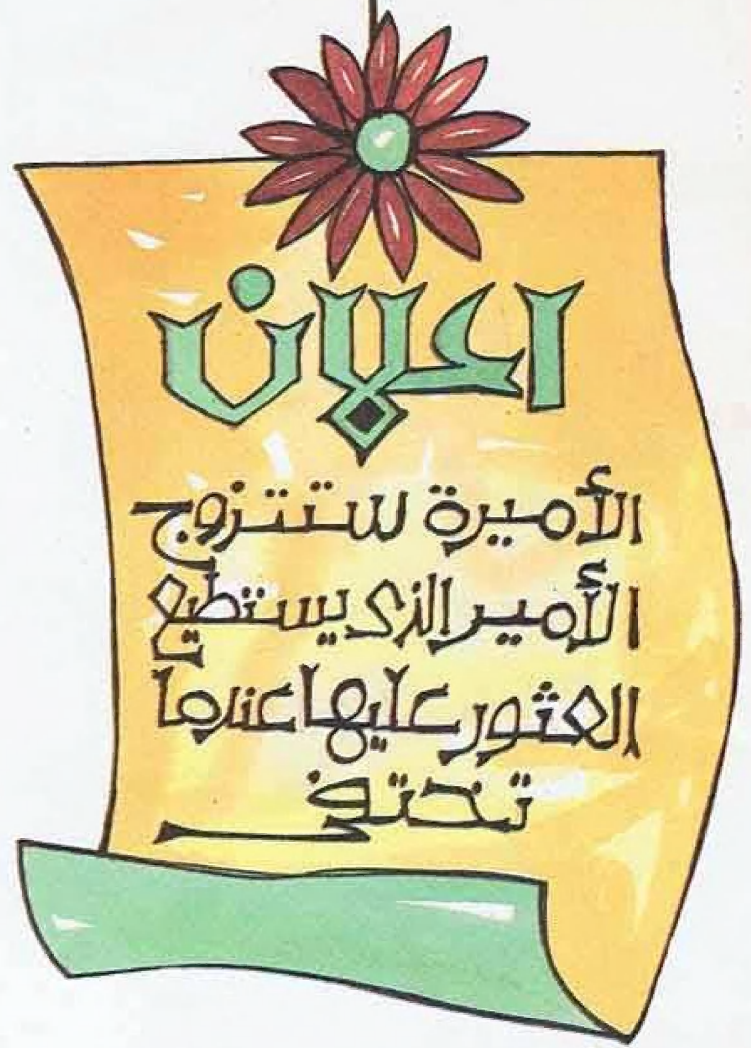 اعلان
الأميرة ستتزوج
الأمير الذى يستطيع
العثور عليها عندما
تختفى